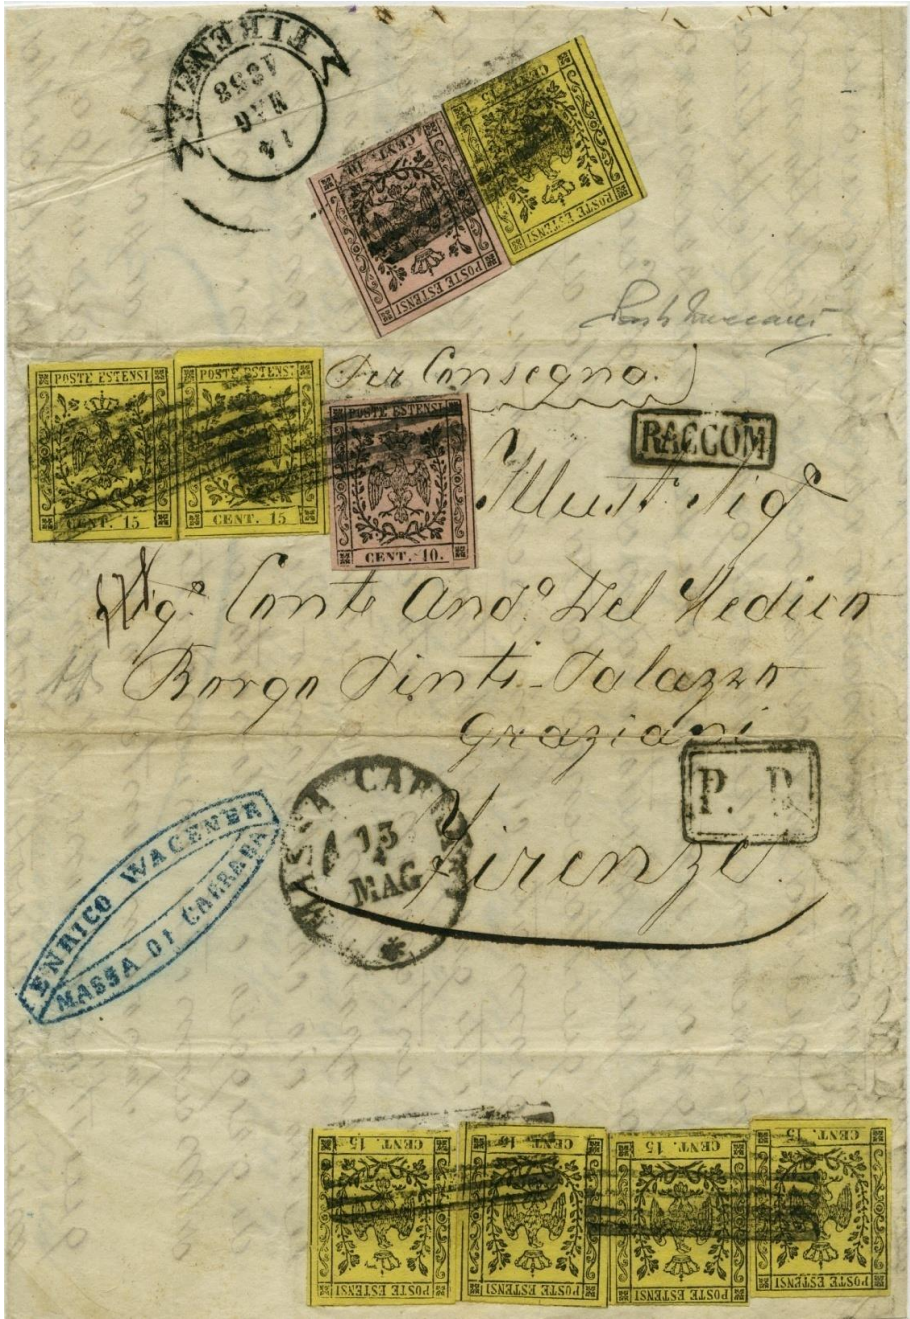 FIRENZE
14
MAG
1858
CENT. 15
POSTE ESTENSI
CENT. 10
POSTE ESTENSI
Per Consegna
POSTE ESTENSI
CENT. 15
POSTE ESTENSI
CENT. 15
POSTE ESTENSI
CENT. 10.
RACCOM
Illust. Sigr
Sigr. Conte Andº Del Medico
Borgo Pinti - Palazzo
Graziani
P. D
Firenze
MASSA CARRARA
13
MAG
ENRICO WAGENER
MASSA DI CARRARA
CENT. 15
POSTE ESTENSI
CENT. 15
POSTE ESTENSI
CENT. 15
POSTE ESTENSI
CENT. 15
POSTE ESTENSI